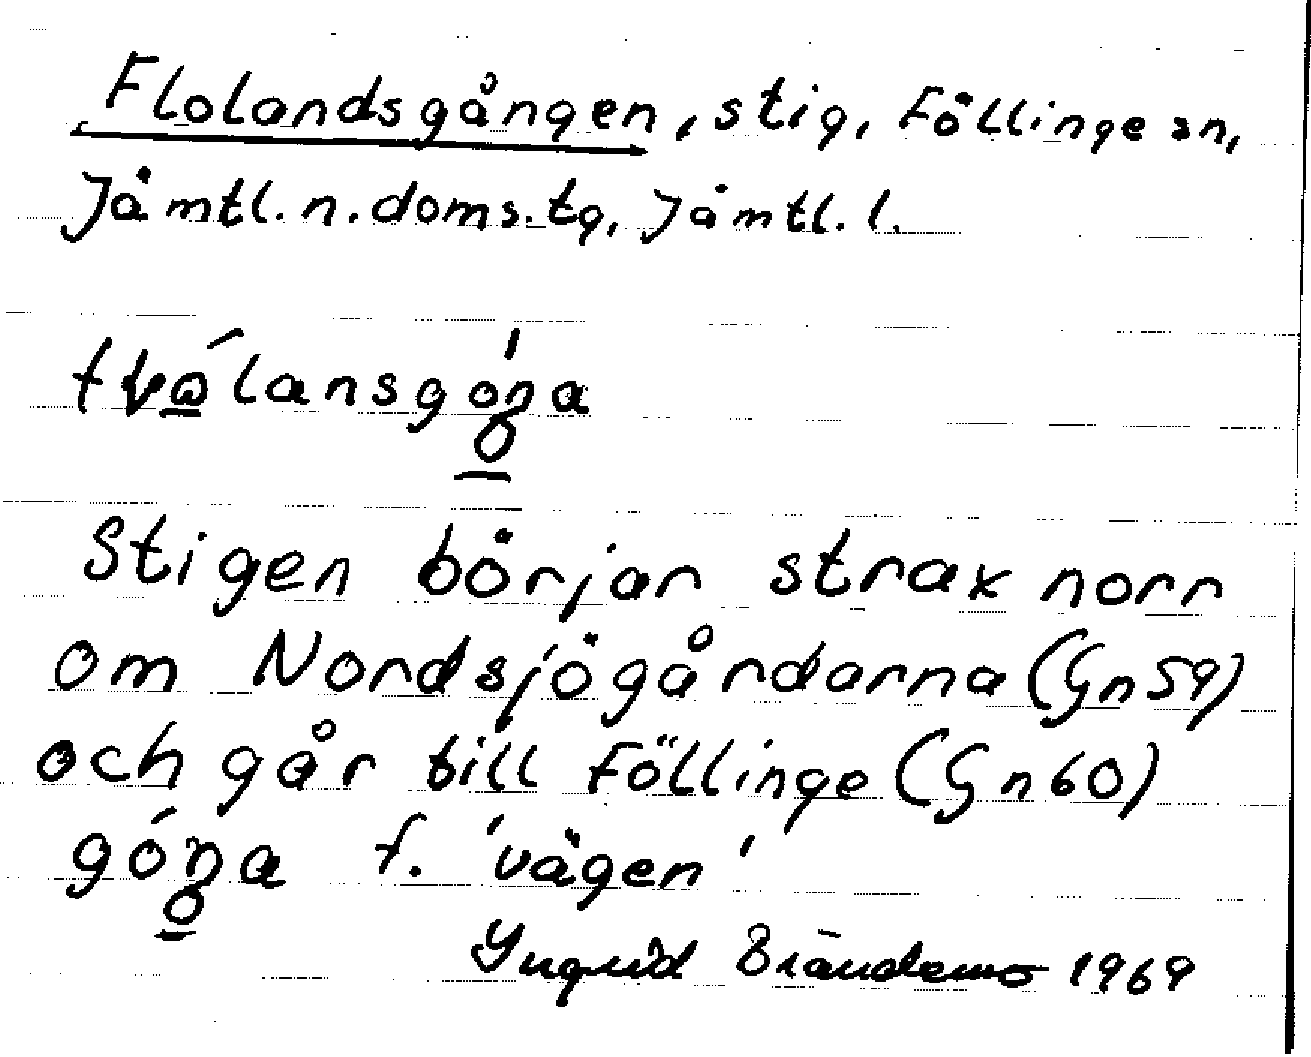 Flolandsgången, stig, Föllinge sn,
Jämtl. n. doms. tg, Jämtl. l.
Stigen börjar strax norr
om Nordsjögårdarna (Gn 59)
och går till Föllinge (Gn 60)
f. 'vägen'
Ingrid Brändemo 1969